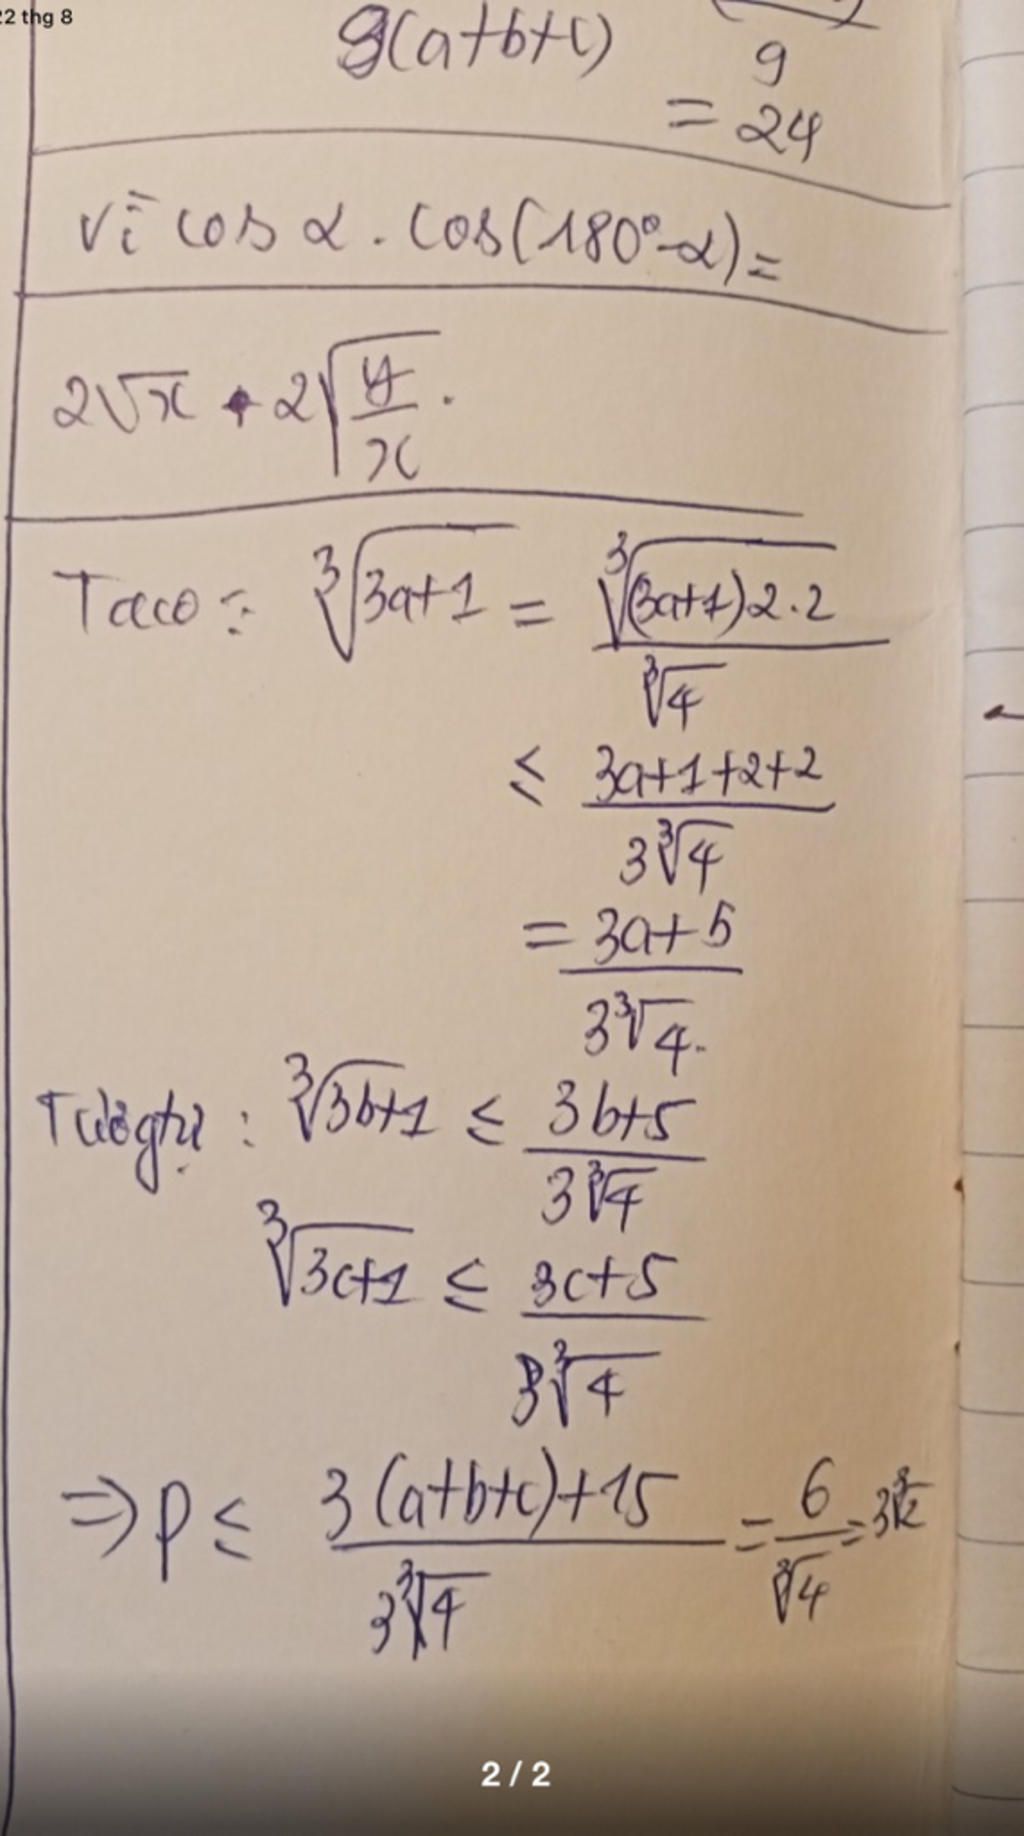 22 thg 8
9(a+b+c)
9
= 24
vì cos α . cos(180°-α) =
2√x + 2√(y/x) .
Ta có : ∛(3a+1) = ∛((3a+1)2.2) / ∛4
≤ (3a+1+2+2) / (3∛4)
= (3a+5) / (3∛4).
Tương tự : ∛(3b+1) ≤ (3b+5) / (3∛4)
∛(3c+1) ≤ (3c+5) / (3∛4)
⇒ P ≤ (3(a+b+c)+15) / (3∛4) = 6/∛4 = 3∛2
2 / 2